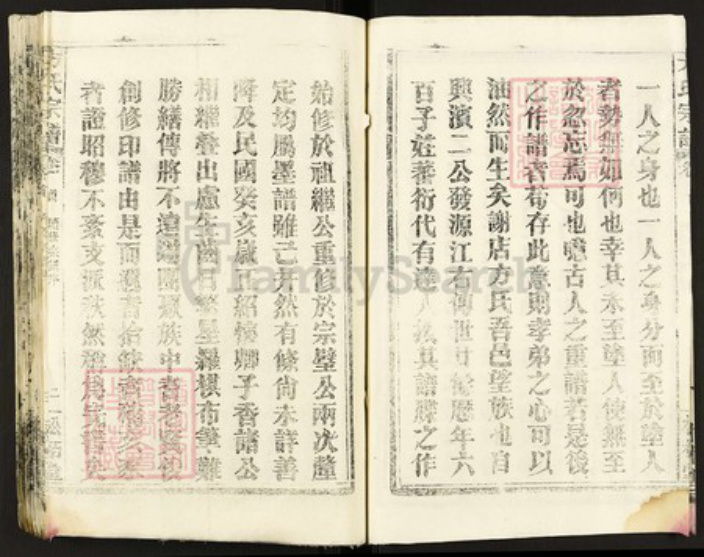 一人之身也一人之身分而至於塗人
者勢無如何也幸其未至塗人使無至
於忽忘焉可也噫古人之重譜若是後
之作譜者苟存此意則孝弟之心可以
油然而生矣謝店方氏吾邑望族也自
興濱二公發源江右傳世廿餘歷年六
百子姓蕃衍代有達人我其譜牒之作
始修於祖繼公重修於宗璧公兩次釐
定均屬墨譜雖已井然有條尚未詳善
降及民國癸亥歲正紹懷卿子香諸公
相繼叠出慮生齒日繁星羅棋布筆難
勝繕傳將不遠
族中者老
創修印譜由是而遠者
者證昭穆不紊支派秩然稱
方氏宗譜
FamilySearch